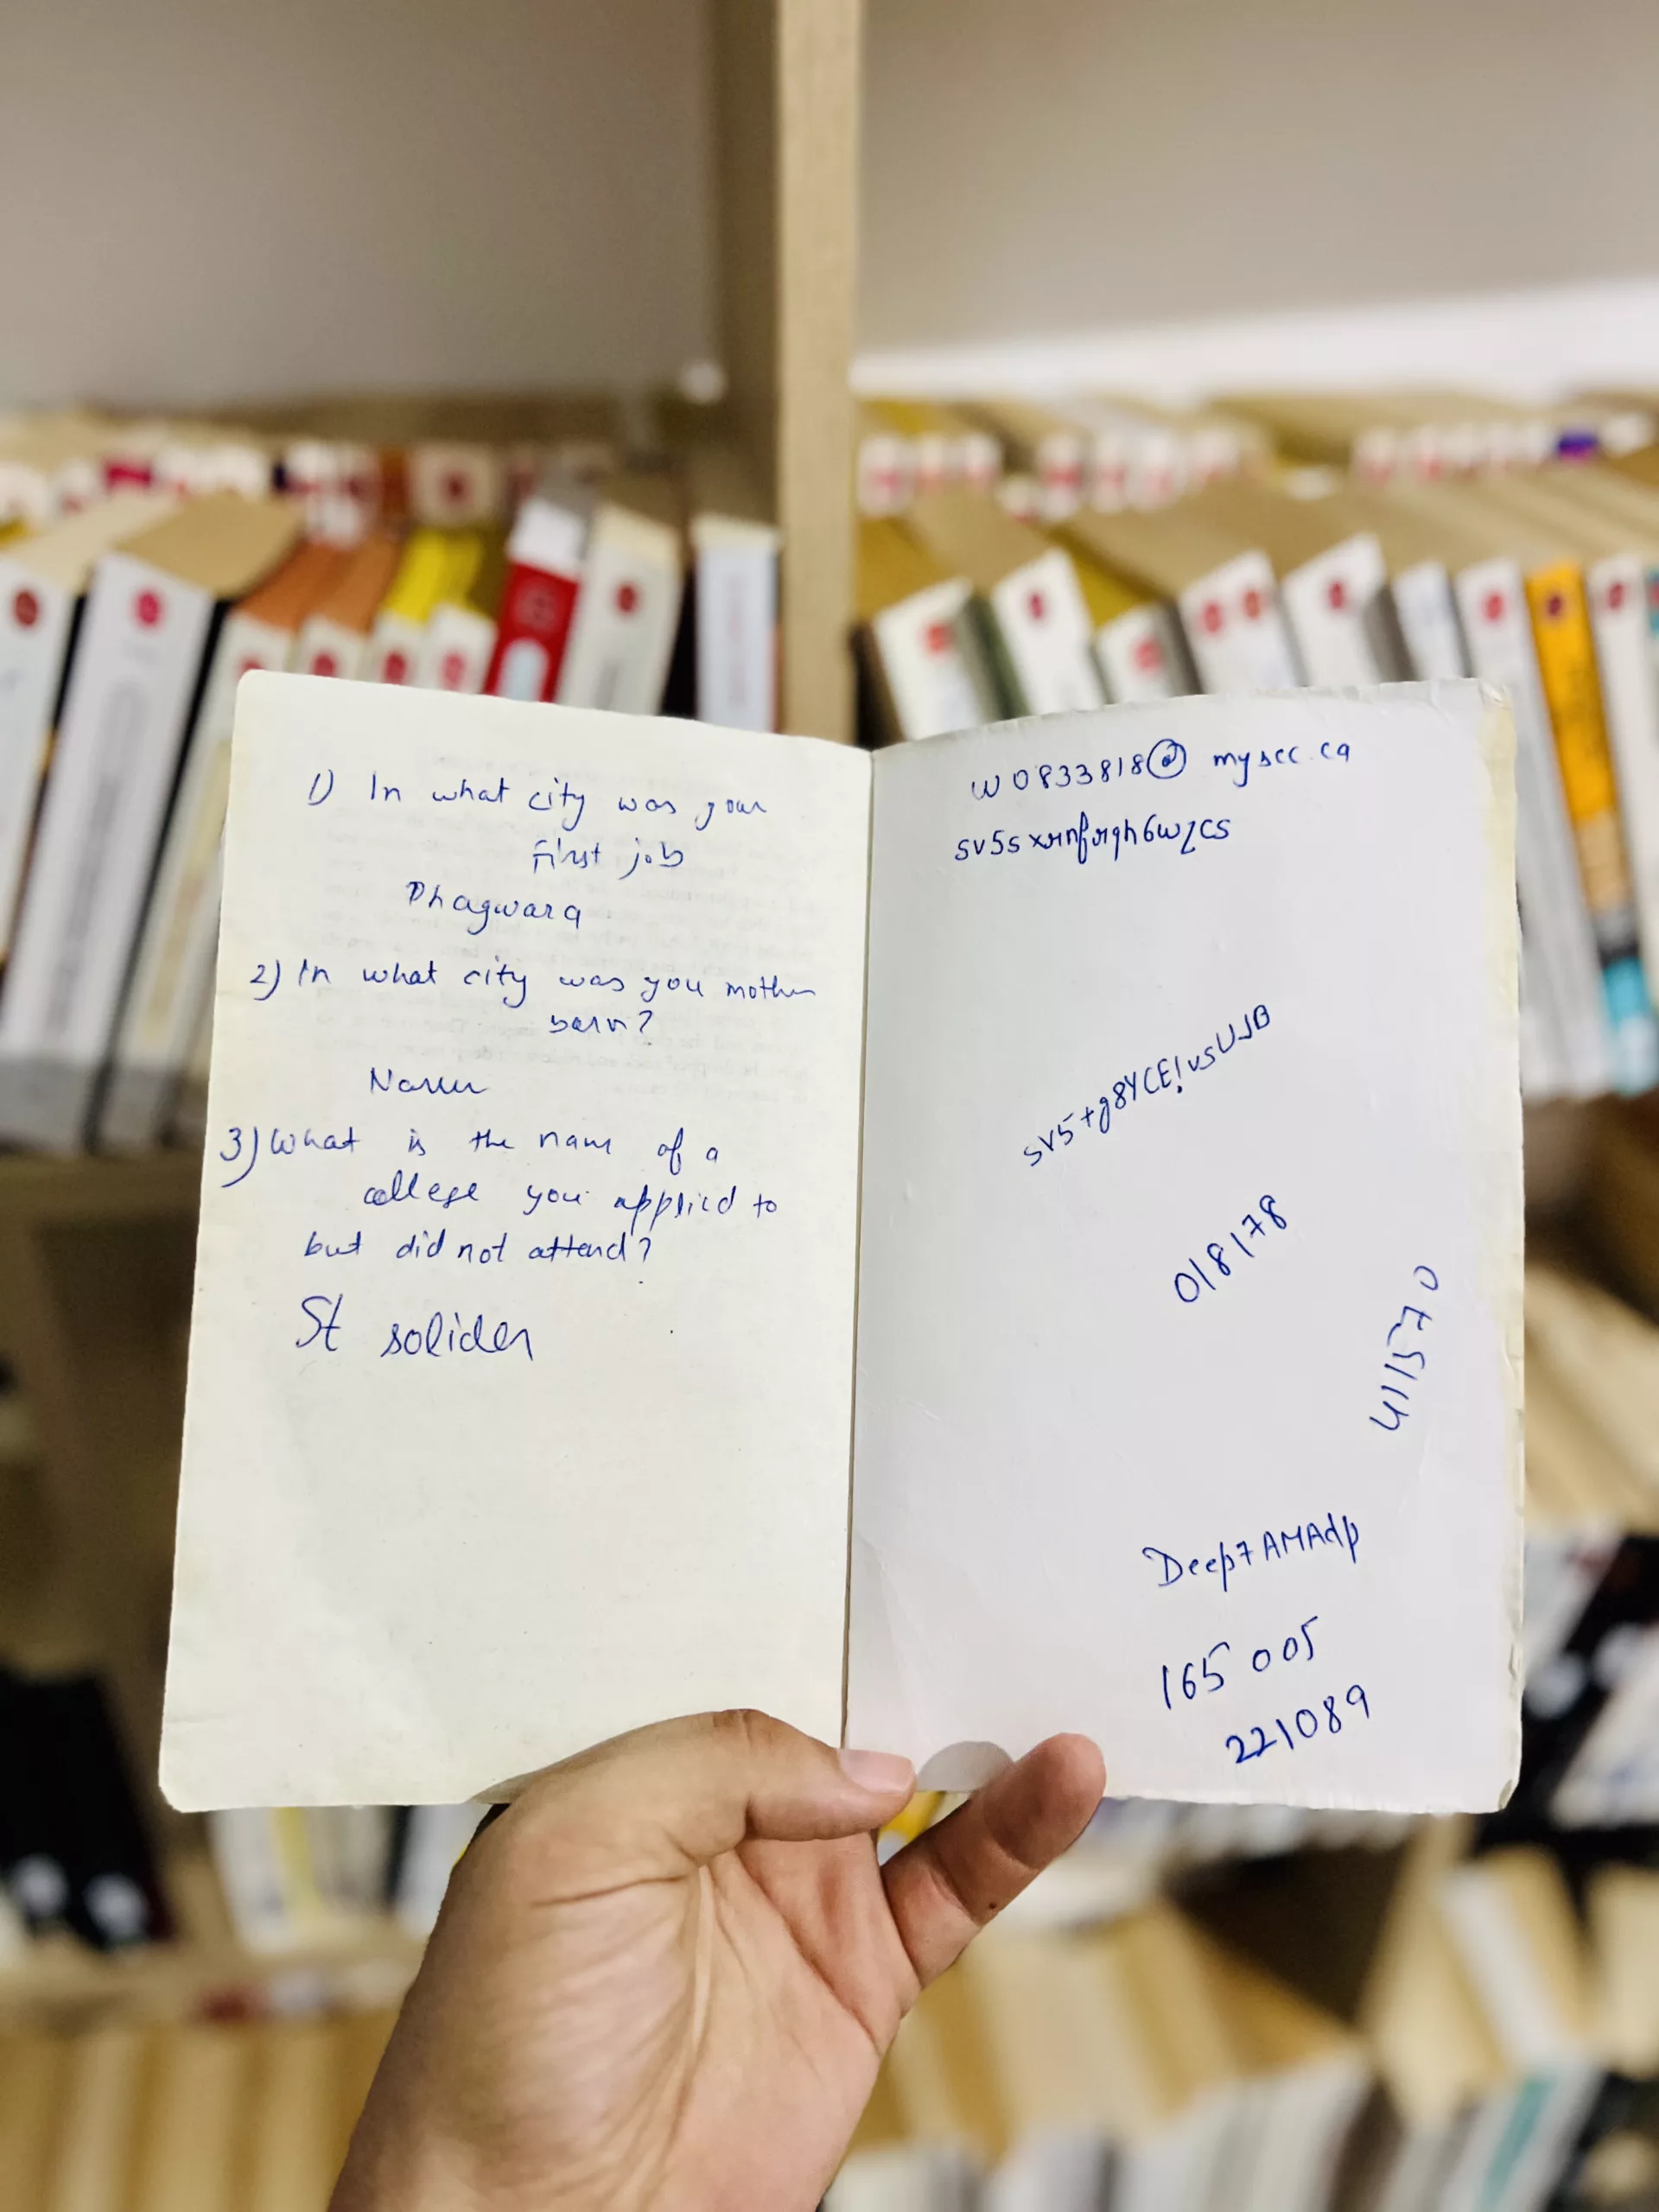 1) In what city was your
First job
Phagwara
2) In what city was you mother
born?
3) What is the name of a
college you applied to
but did not attend?
St solider
W0833818@myscc.ca
sv5+g8YCE!vsUJB
018178
411570
Deep7AMAdp
165005
221089